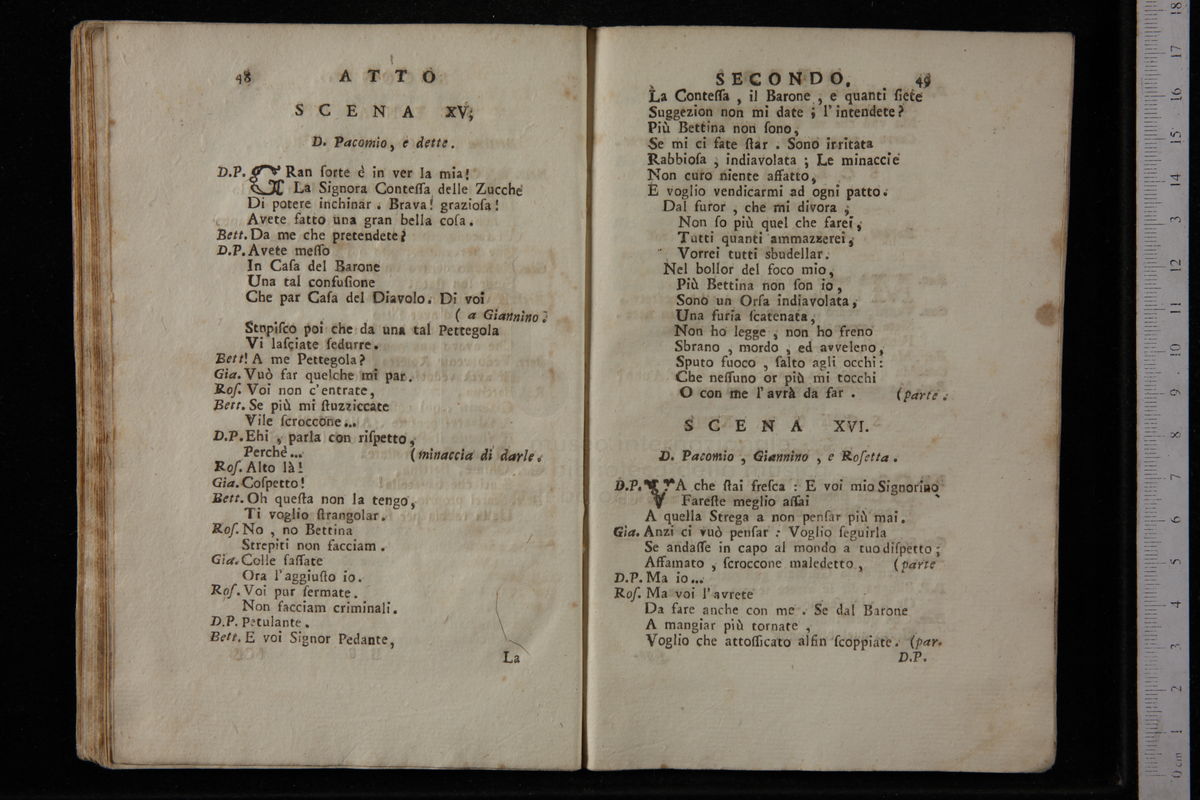 48 ATTO
SCENA XV.
D. Pacomio, e dette.
D.P. GRan ſorte è in ver la mia!
La Signora Conteſſa delle Zucche
Di potere inchinar. Brava! grazioſa!
Avete fatto una gran bella coſa.
Bett. Da me che pretendete?
D.P. Avete meſſo
In Caſa del Barone
Una tal confuſione
Che par Caſa del Diavolo. Di voi
( a Giannino.
Stupiſco poi che da una tal Pettegola
Vi laſciate ſedurre.
Bett. A me Pettegola?
Gia. Vuò far quelche mi par.
Roſ. Voi non c'entrate,
Bett. Se più mi ſtuzziccate
Vile ſcroccone...
D.P. Ehi, parla con riſpetto,
Perchè... (minaccia di darle.
Roſ. Alto là!
Gia. Coſpetto!
Bett. Oh queſta non la tengo,
Ti voglio ſtrangolar.
Roſ. No, no Bettina
Strepiti non facciam.
Gia. Colle ſaſſate
Ora l'aggiuſto io.
Roſ. Voi pur fermate.
Non facciam criminali.
D.P. Petulante.
Bett. E voi Signor Pedante,
La
SECONDO. 49
La Conteſſa, il Barone, e quanti ſiete
Suggezion non mi date; l'intendete?
Più Bettina non ſono,
Se mi ci fate ſtar. Sono irritata
Rabbioſa, indiavolata; Le minaccie
Non curo niente affatto,
E voglio vendicarmi ad ogni patto.
Dal furor, che mi divora,
Non ſo più quel che farei,
Tutti quanti ammazzerei,
Vorrei tutti sbudellar.
Nel bollor del foco mio,
Più Bettina non ſon io,
Sono un Orſa indiavolata,
Una furia ſcatenata,
Non ho legge, non ho freno
Sbrano, mordo, ed avveleno,
Sputo fuoco, ſalto agli occhi:
Che neſſuno or più mi tocchi
O con me l'avrà da far. (parte.
SCENA XVI.
D. Pacomio, Giannino, e Roſetta.
D.P. VA che ſtai freſca: E voi mio Signorino
Fareſte meglio aſſai
A quella Strega a non penſar più mai.
Gia. Anzi ci vuò penſar: Voglio ſeguirla
Se andaſſe in capo al mondo a tuo diſpetto;
Affamato, ſcroccone maledetto, (parte
D.P. Ma io...
Roſ. Ma voi l'avrete
Da fare anche con me. Se dal Barone
A mangiar più tornate,
Voglio che attoſſicato alfin ſcoppiate. (par.
D.P.